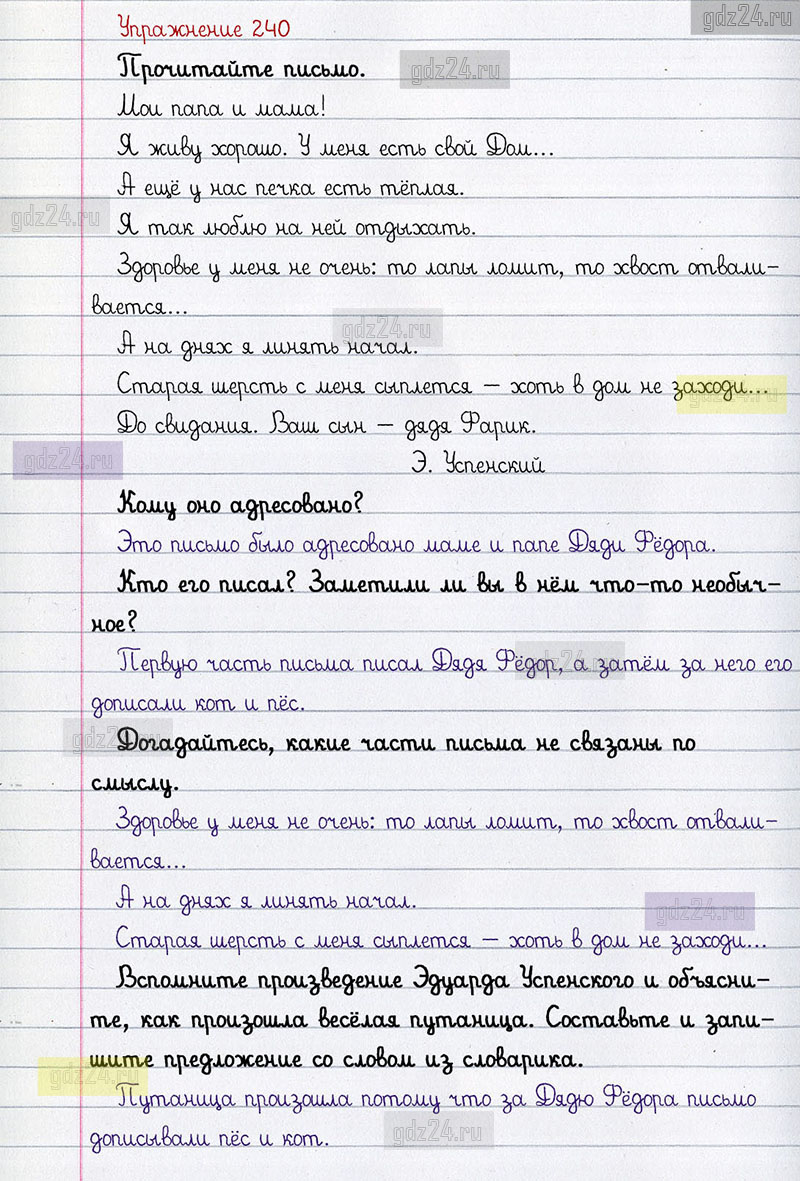 gdz24.ru
Упражнение 240
Прочитайте письмо.
gdz24.ru
Мои папа и мама!
Я живу хорошо. У меня есть свой Дом...
А ещё у нас печка есть тёплая.
gdz24.ru
Я так люблю на ней отдыхать.
Здоровье у меня не очень: то лапы ломит, то хвост отвали-
вается...
gdz24.ru
А на днях я линять начал.
Старая шерсть с меня сыплется – хоть в дом не заходи...
gdz24.ru
До свидания. Ваш сын – дядя Фарик.
gdz24.ru
Э. Успенский
Кому оно адресовано?
Это письмо было адресовано маме и папе Дяди Фёдора.
Кто его писал? Заметили ли вы в нём что-то необыч-
ное?
Первую часть письма писал Дядя Фёдор, а затем за него его
gdz24.ru
дописали кот и пёс.
gdz24.ru
Догадайтесь, какие части письма не связаны по
смыслу.
Здоровье у меня не очень: то лапы ломит, то хвост отвали-
вается...
А на днях я линять начал.
gdz24.ru
Старая шерсть с меня сыплется – хоть в дом не заходи...
Вспомните произведение Эдуарда Успенского и объясни-
те, как произошла весёлая путаница. Составьте и запи-
шите предложение со словом из словарика.
gdz24.ru
Путаница произошла потому что за Дядю Фёдора письмо
дописывали пёс и кот.
gdz24.ru